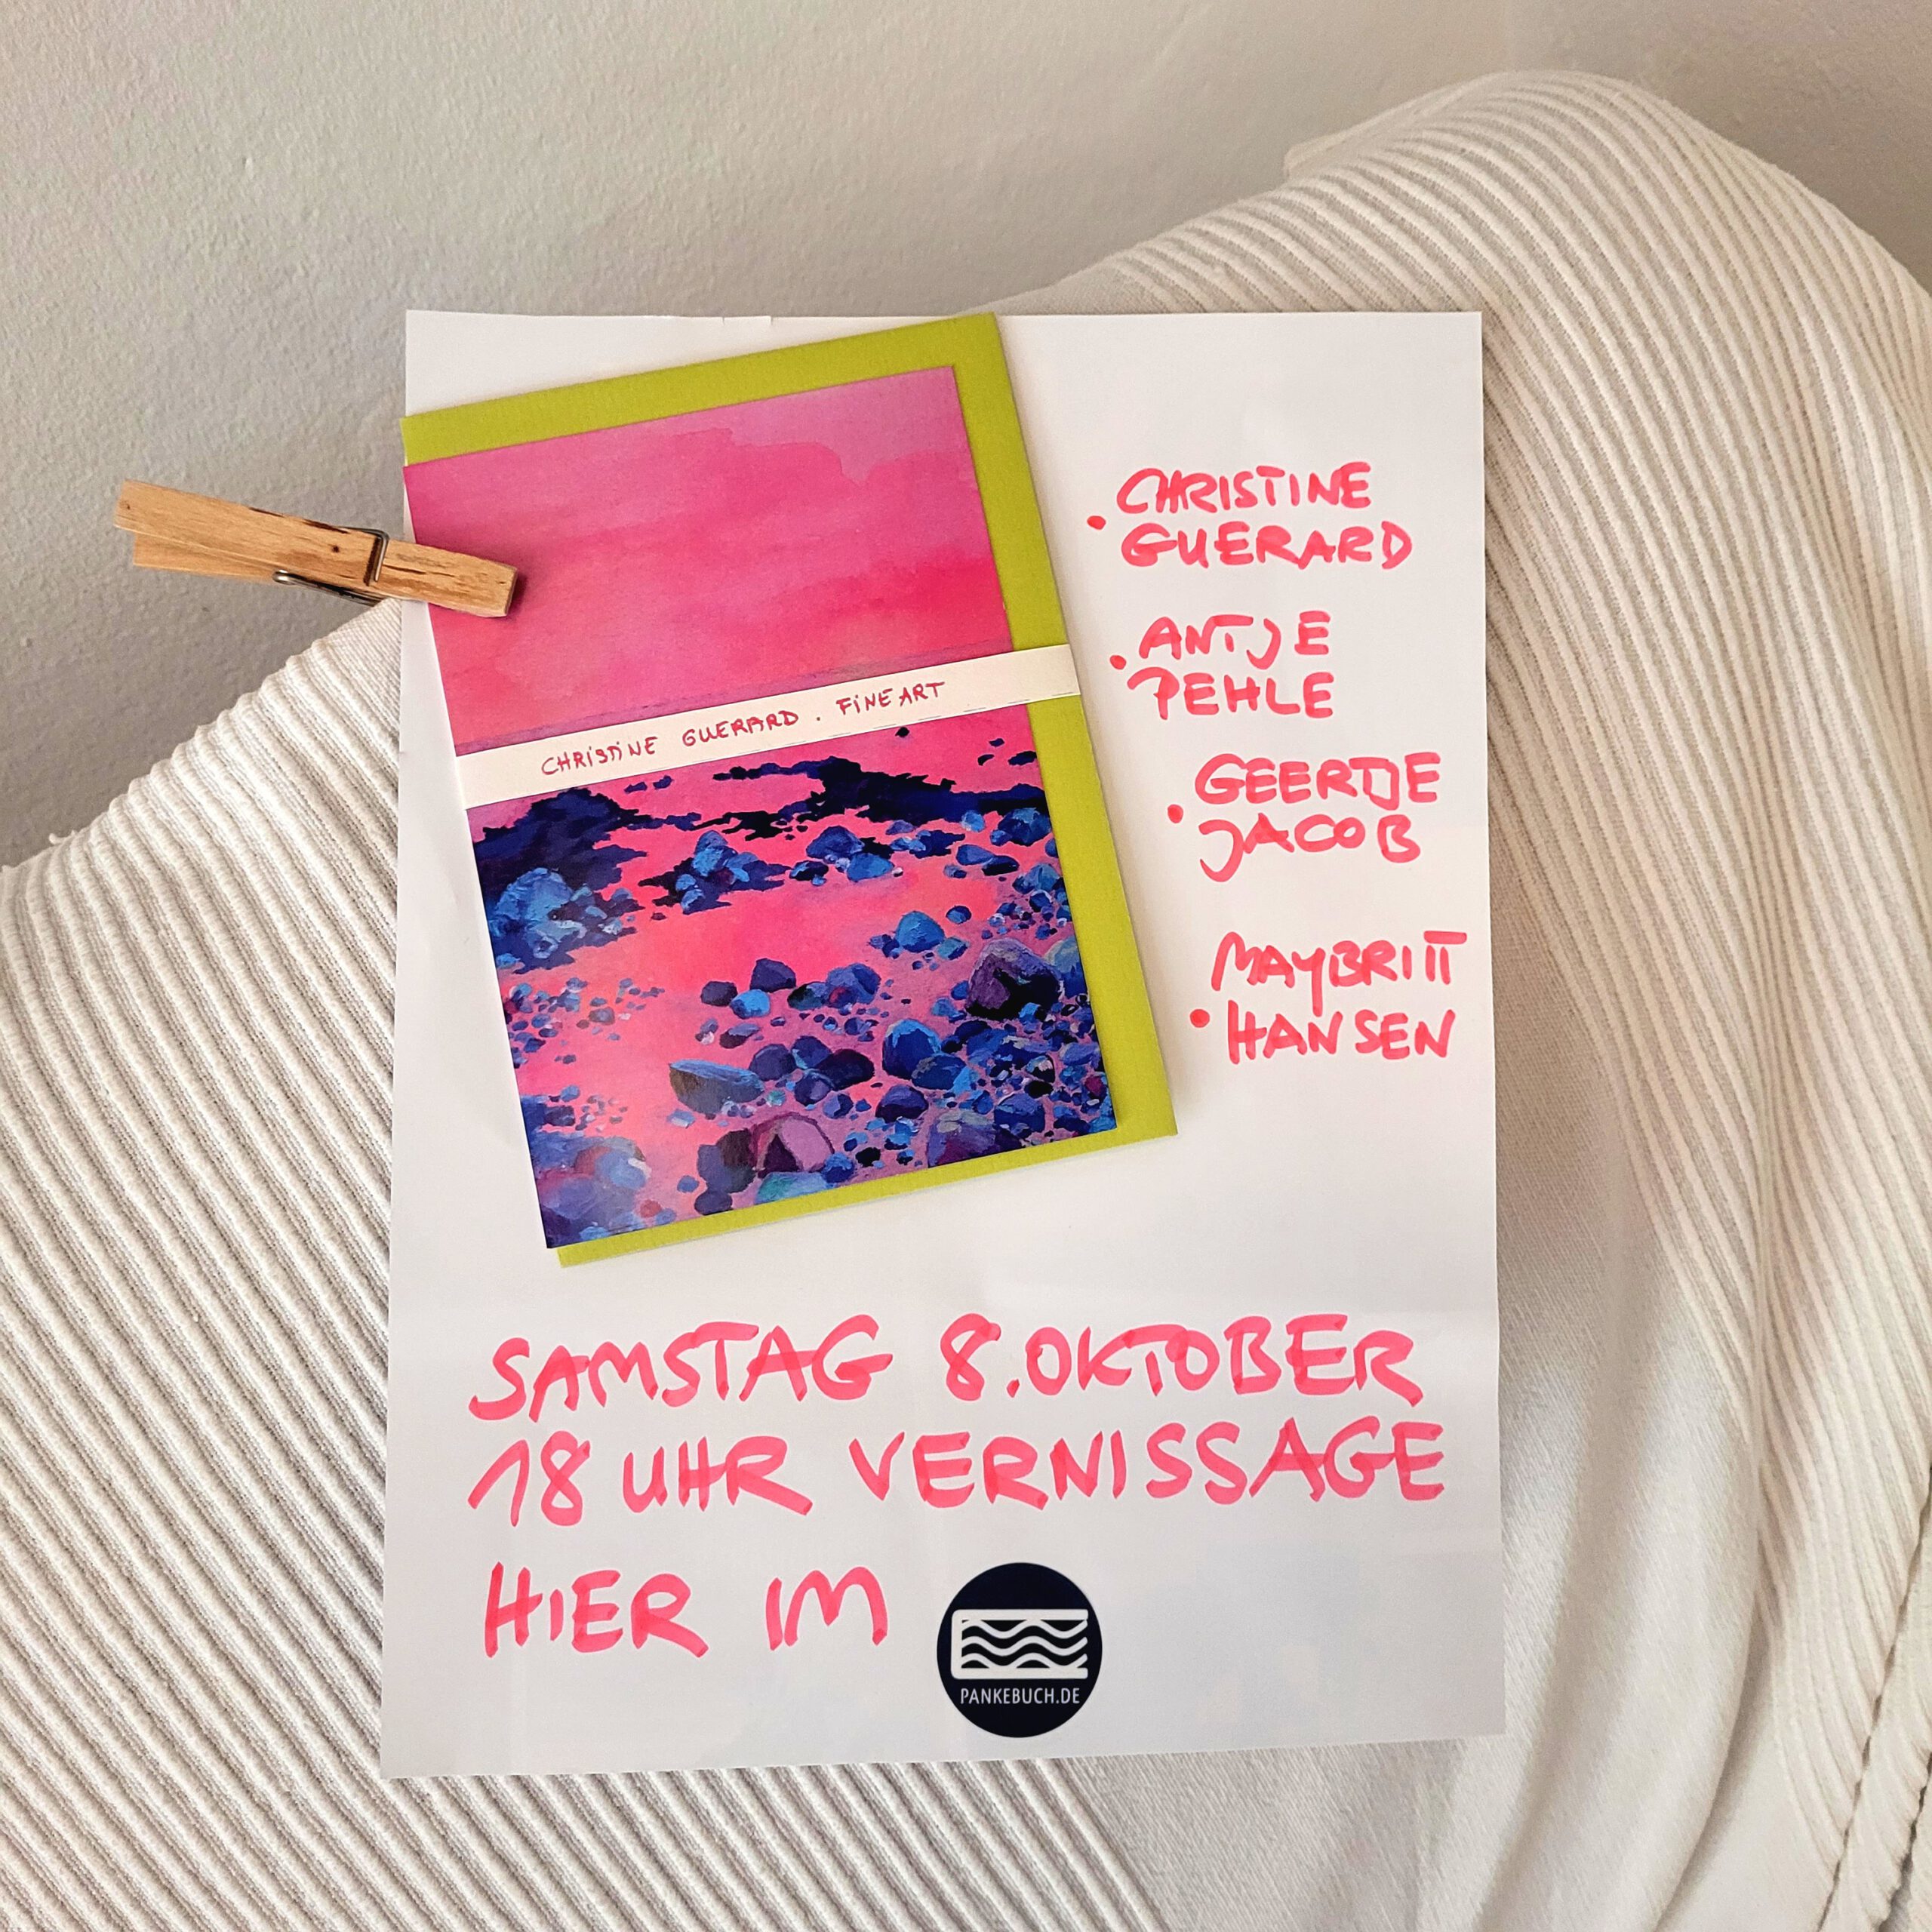 CHRISTINE GUERARD . FINE ART
• CHRISTINE
GUERARD
• ANTJE
PEHLE
• GEERTJE
JACOB
MAYBRITT
• HANSEN
SAMSTAG 8. OKTOBER
18 UHR VERNISSAGE
HIER IM
PANKEBUCH.DE